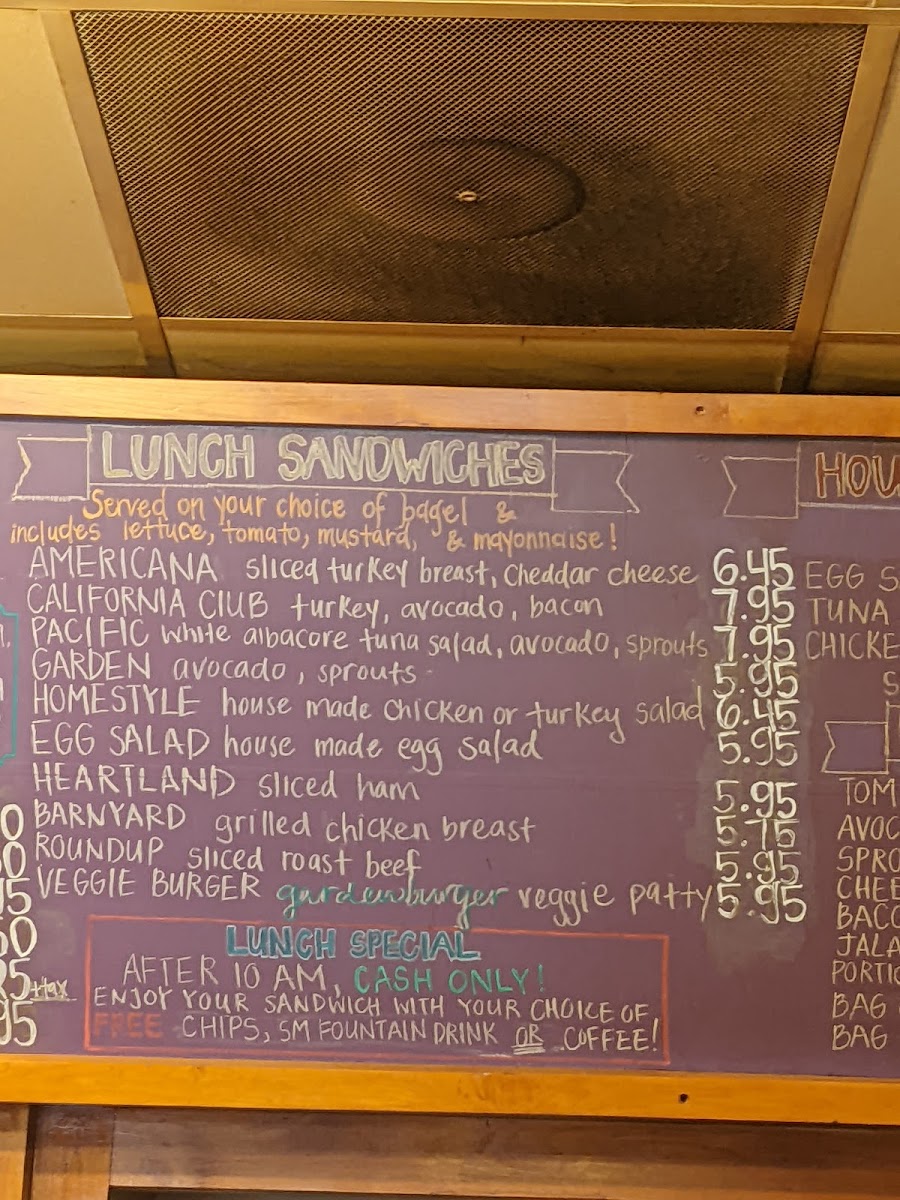 LUNCH SANDWICHES
Served on your choice of bagel &
includes lettuce, tomato, mustard, & mayonnaise!
AMERICANA sliced turkey breast, Cheddar cheese 6.45
CALIFORNIA CLUB turkey, avocado, bacon 7.95
PACIFIC White albacore tuna salad, avocado, sprouts 7.95
GARDEN avocado, sprouts 5.95
HOMESTYLE house made chicken or turkey salad 6.45
EGG SALAD house made egg salad 5.95
HEARTLAND sliced ham 5.95
BARNYARD grilled chicken breast 5.75
ROUNDUP sliced roast beef 5.95
VEGGIE BURGER gardenburger veggie patty 5.95
LUNCH SPECIAL
AFTER 10 AM, CASH ONLY!
ENJOY YOUR SANDWICH WITH YOUR CHOICE OF
FREE CHIPS, SM FOUNTAIN DRINK OR COFFEE!
+tax
HOU
EGG S
TUNA
CHICKE
S
TOM
AVOC
SPRO
CHEE
BACO
JALA
PORTIO
BAG
BAG